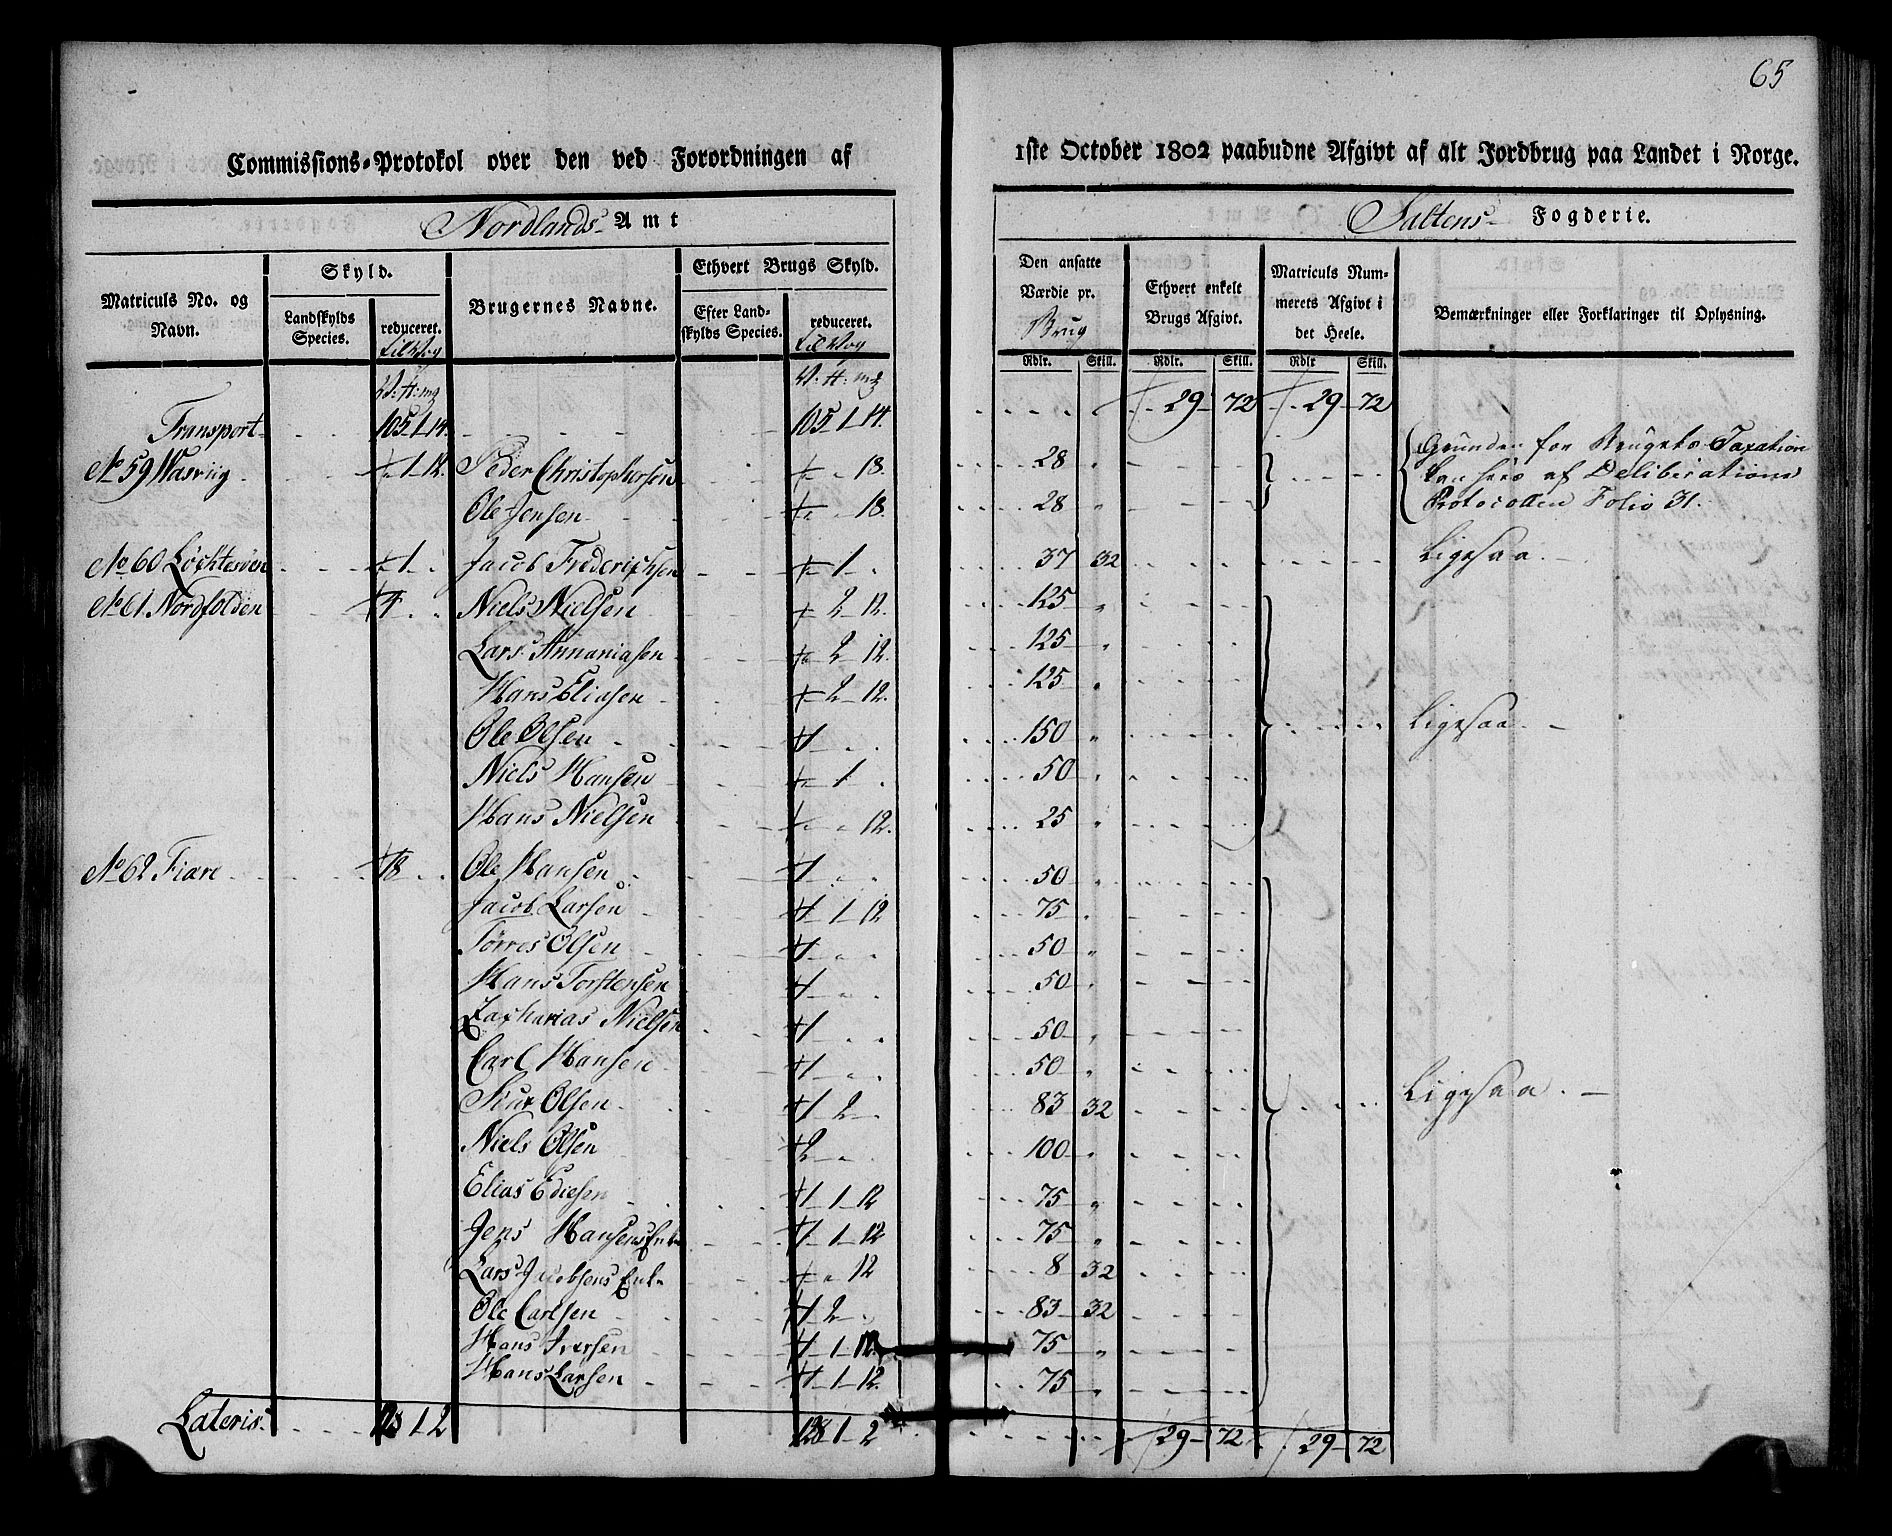 65
Commissions-Protokol over den ved Forordningen af 1ste October 1802 paabudne Afgivt af alt Jordbrug paa Landet i Norge.
Nordlands Amt
Saltens Fogderie.
Matriculs No. og Navn.
Skyld.
Landskylds Species.
reduceret.
Brugernes Navne.
Ethvert Brugs Skyld.
Efter Landskylds Species.
reduceret.
Den ansatte Værdie pr. Brug
Ethvert enkelt Brugs Afgivt.
Matriculs Nummerets Afgivt i det Heele.
Bemærkninger eller Forklaringer til Oplysning.
Rdlr. Skill. Rdlr. Skill. Rdlr Skill.
Transport 105 1 14. 105 1 14. 29 72 29 72
No 59 1 12 Peder Christophersen 18. 28 Grunden for Brugets Taxation
kan sees af Deliberations
Ole Jensen 18. 28 Protocollen Folio 31.
No 60 1 Jacob Frederichsen 1 37 32 Ligesaa.
No 61 Nordfolden 7 Niels Nielsen 2 12. 125
Lars Annaniasen 2 12. 125
Hans Eliasen 2 12. 125
Ole Olsen 1 150 Ligesaa.
Niels Hansen 1 50
Hans Nielsen 12. 25
No 62 Fiære 18 Ole Hansen 1 50
Jacob Larsen 1 1 12 75
Torres Olsen 1 50
Hans Torstensen 1 50
Zacharias Nielsen 1 50
Carl Hansen 1 50
Siur Olsen 1 2 83 32 Ligesaa.
Niels Olsen 2 100
Elias Ediesen 1 1 12 75
Jens Hansens Enke 1 1 12 75
Lars Jacobsens Enke 12 8 32
Ole Carlsen 1 2 83 32
Hans Iversen 1 1 12. 75
Hans Larsen 1 1 12. 75
Lateris 128 1 2 128 1 2 29 72 29 72